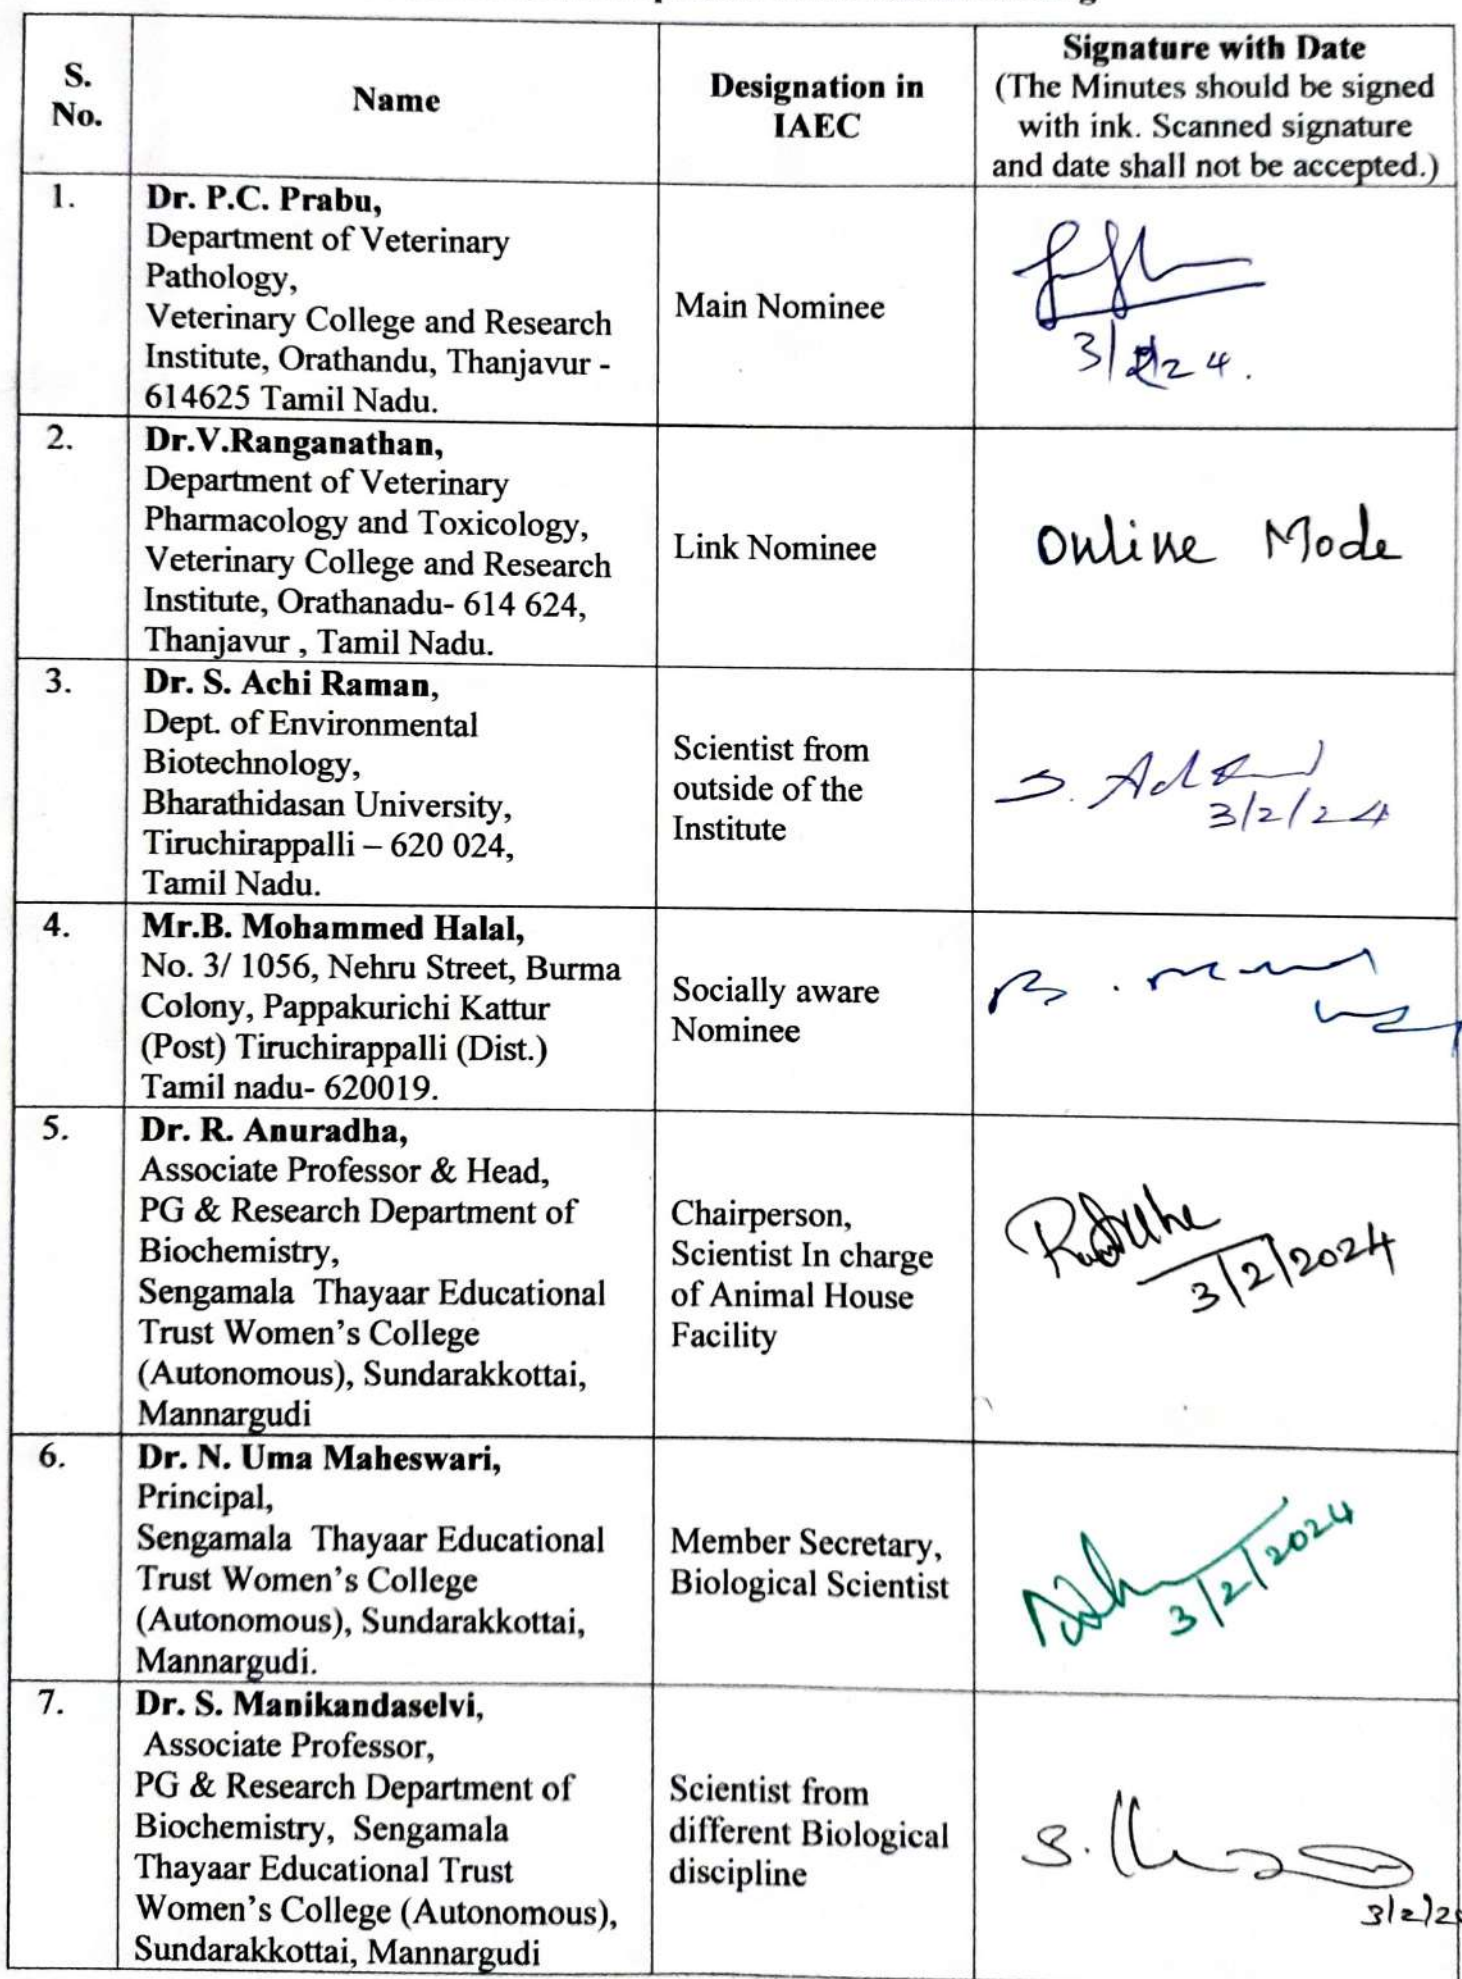 S.
No.
Name
Designation in
IAEC
Signature with Date
(The Minutes should be signed
with ink. Scanned signature
and date shall not be accepted.)
1.
Dr. P.C. Prabu,
Department of Veterinary
Pathology,
Veterinary College and Research
Institute, Orathandu, Thanjavur -
614625 Tamil Nadu.
Main Nominee
3/2/24.
2.
Dr.V.Ranganathan,
Department of Veterinary
Pharmacology and Toxicology,
Veterinary College and Research
Institute, Orathanadu- 614 624,
Thanjavur , Tamil Nadu.
Link Nominee
Online Mode
3.
Dr. S. Achi Raman,
Dept. of Environmental
Biotechnology,
Bharathidasan University,
Tiruchirappalli – 620 024,
Tamil Nadu.
Scientist from
outside of the
Institute
3/2/24
4.
Mr.B. Mohammed Halal,
No. 3/ 1056, Nehru Street, Burma
Colony, Pappakurichi Kattur
(Post) Tiruchirappalli (Dist.)
Tamil nadu- 620019.
Socially aware
Nominee
5.
Dr. R. Anuradha,
Associate Professor & Head,
PG & Research Department of
Biochemistry,
Sengamala Thayaar Educational
Trust Women's College
(Autonomous), Sundarakkottai,
Mannargudi
Chairperson,
Scientist In charge
of Animal House
Facility
3/2/2024
6.
Dr. N. Uma Maheswari,
Principal,
Sengamala Thayaar Educational
Trust Women's College
(Autonomous), Sundarakkottai,
Mannargudi.
Member Secretary,
Biological Scientist
3/2/2024
7.
Dr. S. Manikandaselvi,
Associate Professor,
PG & Research Department of
Biochemistry, Sengamala
Thayaar Educational Trust
Women's College (Autonomous),
Sundarakkottai, Mannargudi
Scientist from
different Biological
discipline
3/2/2